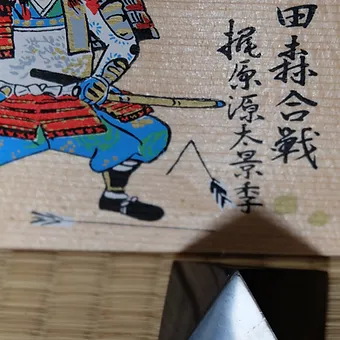 田森合戦
梶原源太景季